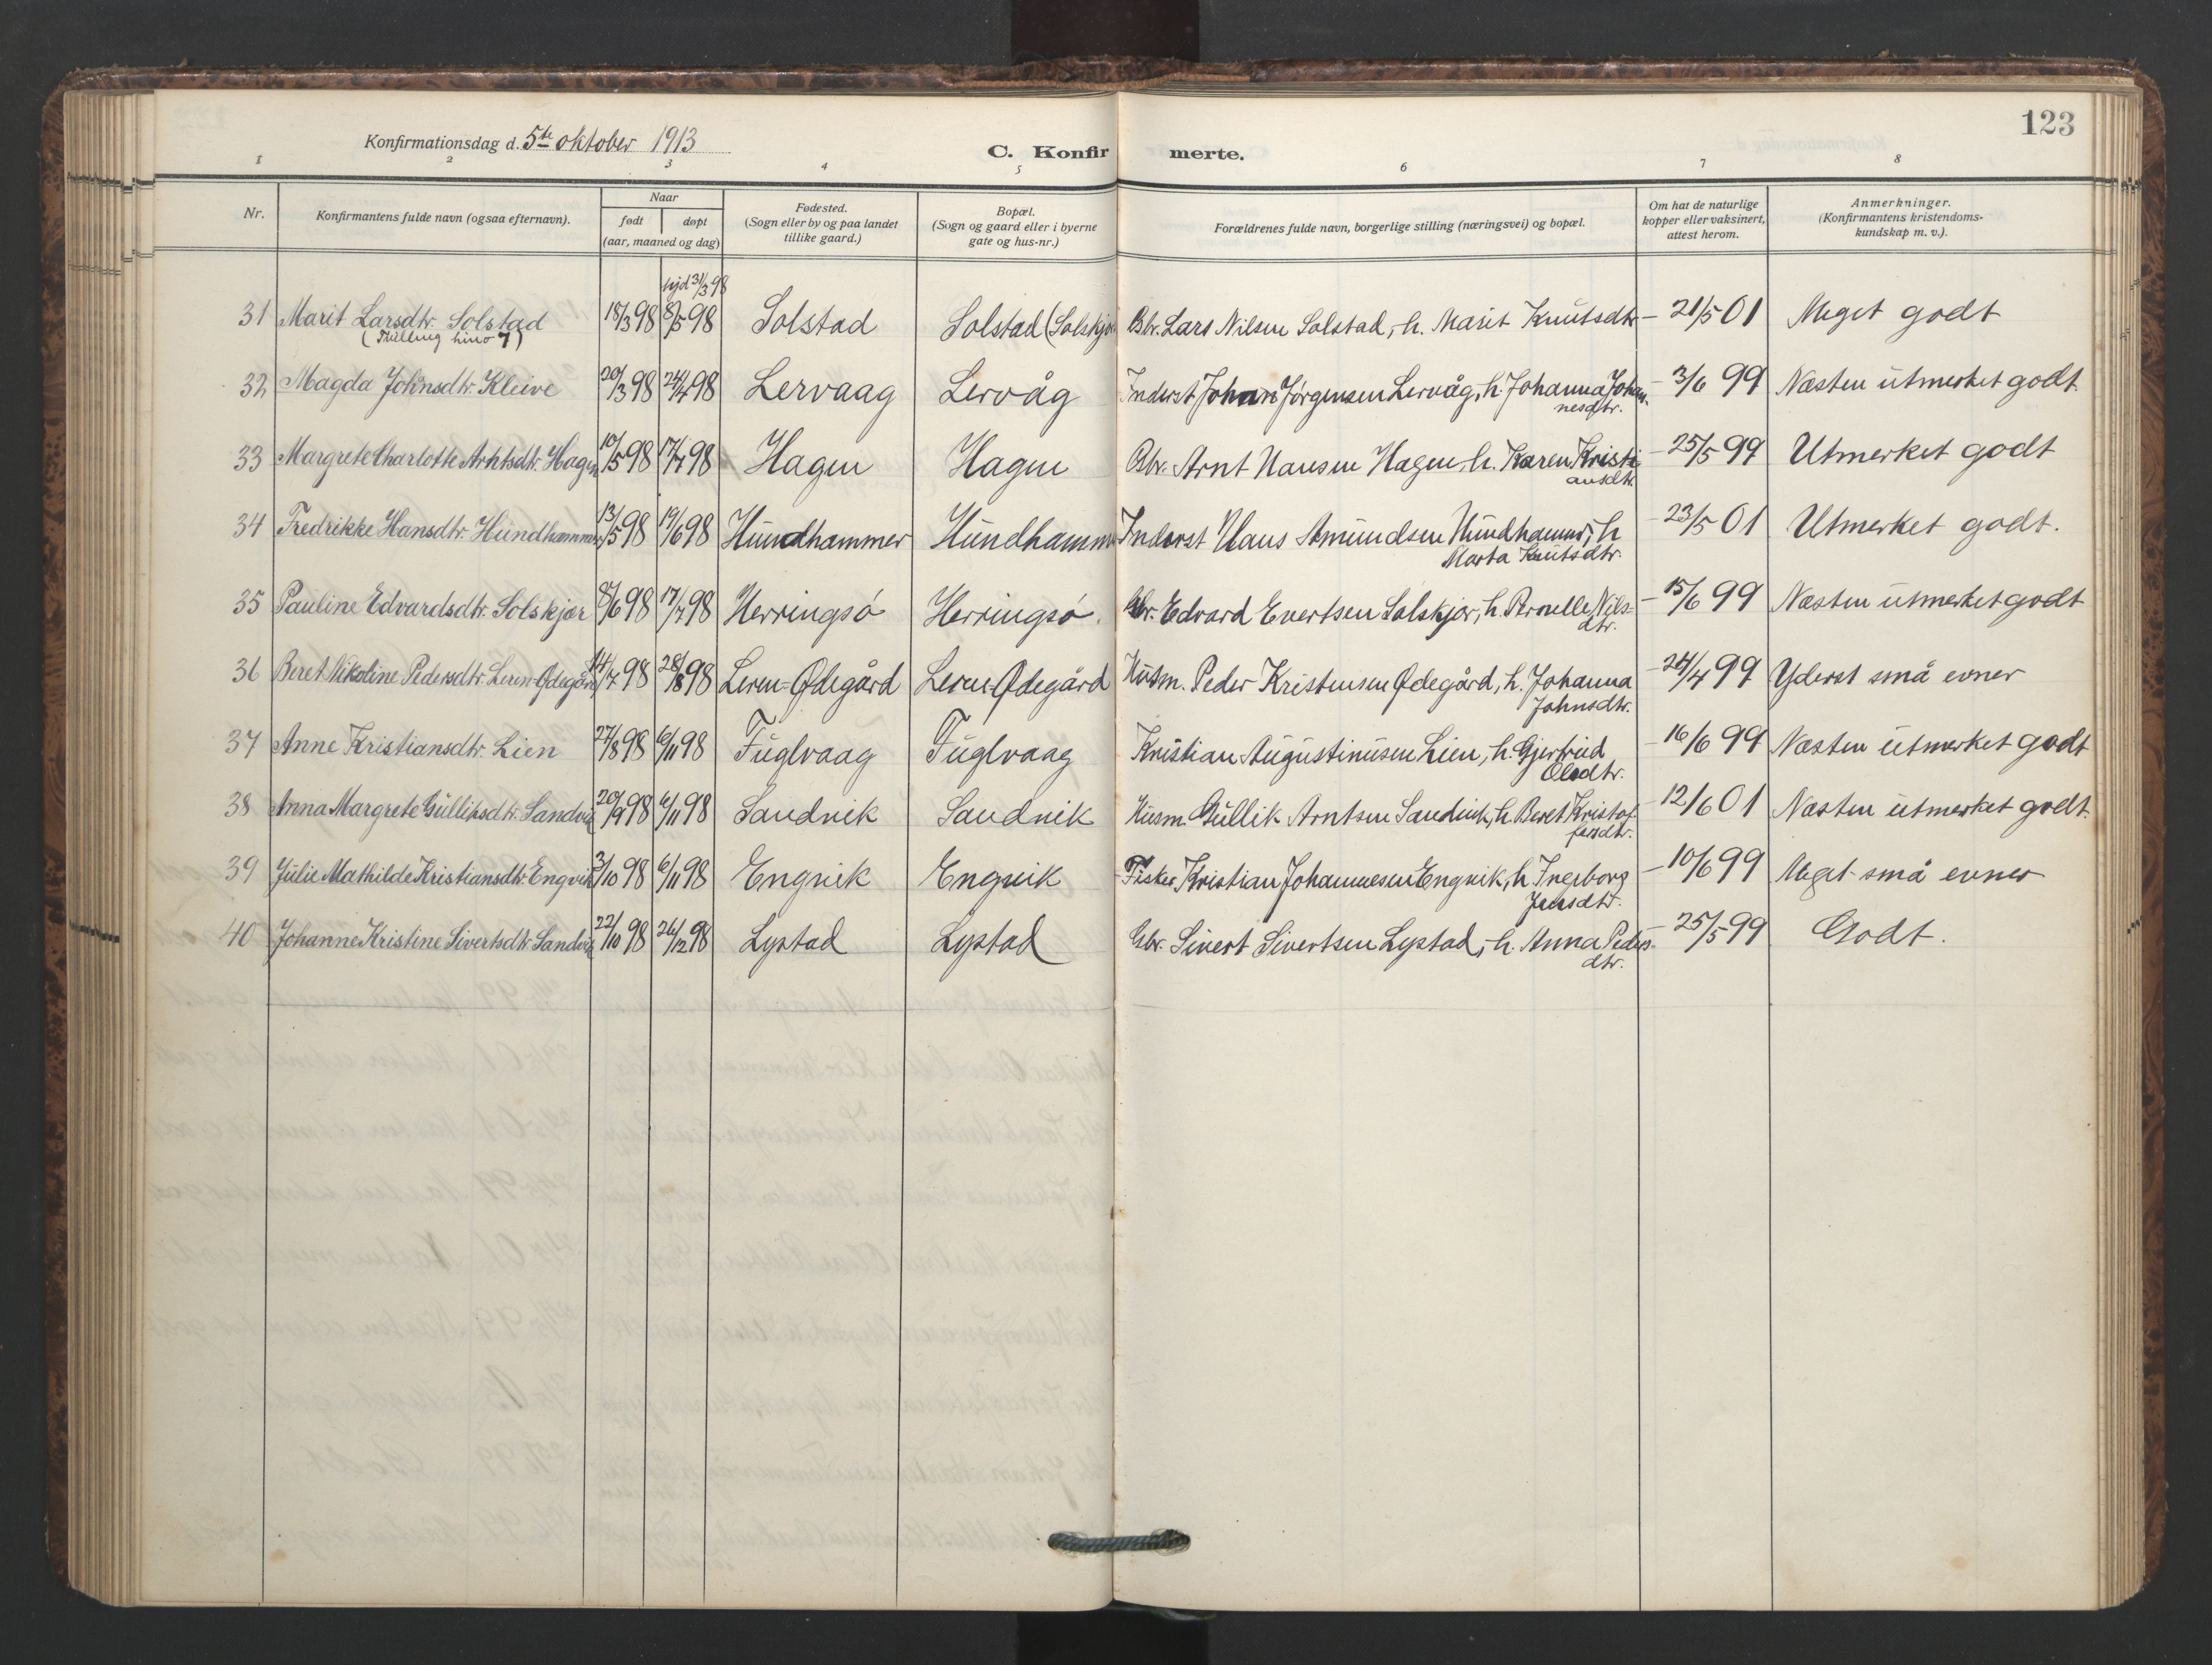 123
Konfirmationsdag d. 5te oktober 1913
C. Konfir merte.
1 2 3 4 5 6 7 8
Nr. Konfirmantens fulde navn (ogsaa efternavn). Naar født døpt (aar, maaned og dag) Fødested. (Sogn eller by og paa landet tillike gaard.) Bopæl. (Sogn og gaard eller i byerne gate og hus-nr.) Forældrenes fulde navn, borgerlige stilling (næringsvei) og bopæl. Om hat de naturlige kopper eller vaksinert, attest herom. Anmerkninger. (Konfirmantens kristendoms-kundskap m. v.).
hjd 31/3 98
31 Marit Larsdtr. Solstad 18/3 98 8/5 98 Solstad Solstad (Solskjær Gbr. Lars Nilsen Solstad, h. Marit Knutsdtr — 21/5 01 Meget godt
32 Magda Johnsdtr. Kleive 20/3 98 24/4 98 Lervaag Lervåg Inderst Johan Jørgensen Lervåg, h. Johanna Johan- — 3/6 99 Næsten utmerket godt
nesdtr.
33 Margrete Charlotte Arntsdtr. Hagen 10/5 98 17/7 98 Hagen Hagen Gbr. Arnt Hansen Hagen, h. Karen Kristi — 25/5 99 Utmerket godt
ansdtr.
34 Fredrikke Hansdtr. Hundhammer 13/5 98 19/6 98 Hundhammer Hundhamm Inderst Hans Amundsen Hundhammer, h — 23/5 01 Utmerket godt.
Marta Knutsdtr.
35 Pauline Edvardsdtr. Solskjær 8/6 98 17/7 98 Herringsö Herringsö. Gbr. Edvard Evertsen Solskjær, h. Pernelle Nils- — 15/6 99 Næsten utmerket godt
dtr.
36 Beret Nikoline Pedersdtr. Leren-Ødegård 14/7 98 28/8 98 Leren-Ødegård Leren-Ødegård Husm. Peder Kristensen Ødegård, h. Johanna — 24/4 99 Yderst små evner
Johnsdtr.
37 Anne Kristiansdtr. Lien 27/8 98 6/11 98 Fuglvaag Fuglvaag Kristian Augustinusen Lien, h. Gjertrud — 16/6 99 Næsten utmerket godt
Olsdtr.
38 Anna Margrete Gulliksdtr. Sandvik 20/9 98 6/11 98 Sandvik Sandvik Husm. Gullik Arntsen Sandvik, h. Beret Kristof — 12/6 01 Næsten utmerket godt.
fersdtr.
39 Julie Mathilde Kristiansdtr. Engvik 3/10 98 6/11 98 Engvik Engvik Fisker Kristian Johannesen Engvik, h Ingeborg — 10/6 99 Meget små evner
Jensdtr.
40 Johanne Kristine Sivertsdtr. Sandvik 22/10 98 26/12 98 Lystad Lystad Gbr. Sivert Sivertsen Lystad, h. Anna Peders- — 25/5 99 Godt.
dtr.